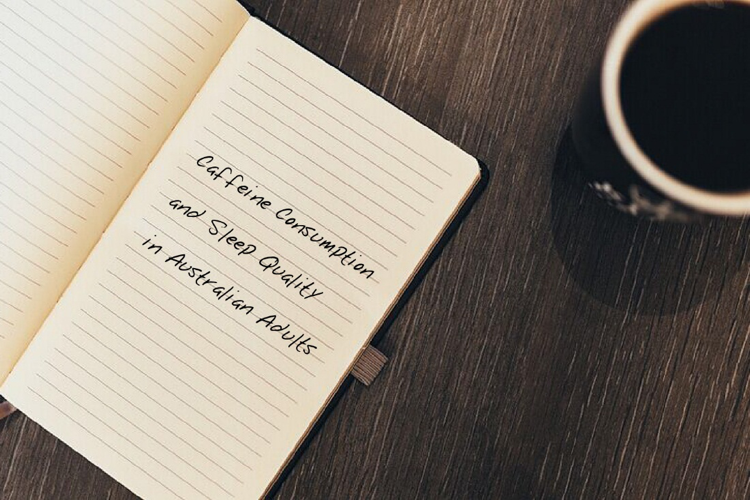 Caffeine Consumption
and Sleep Quality
in Australian Adults